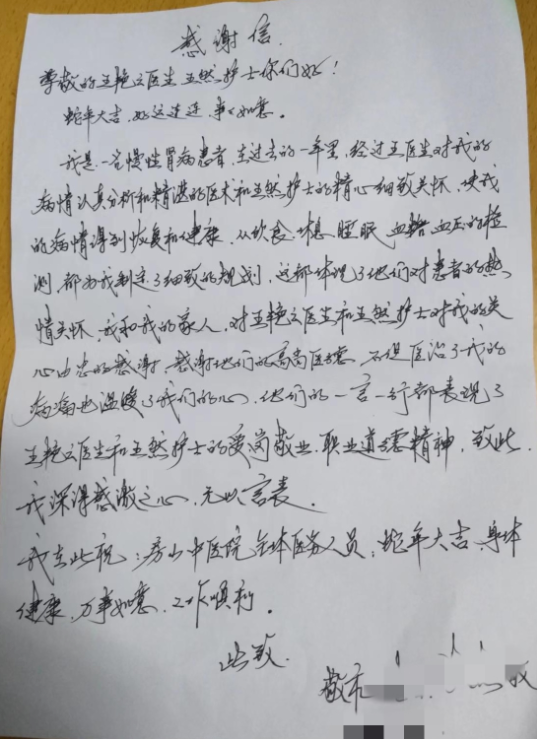 感谢信
尊敬的王艳云医生 王然护士你们好!
蛇年大吉,好运连连,事事如意。
我是一名慢性肾病患者,在过去的一年里,经过王医生对我的
病情认真分析和精湛的医术和王然护士的精心细致关怀,使我
的病情得到恢复和健康,从饮食、休息、睡眠、血糖、血压的检
测,都为我制定了细致的规划,这都体现了他们对患者的热
情关怀,我和我的家人,对王艳云医生和王然护士对我的关
心由衷的感谢,感谢他们的高尚医德,不但医治了我的
病痛也温暖了我们的心,他们的一言一行都表现了
王艳云医生和王然护士的爱岗敬业、职业道德精神,致此,
我深得感激之心,无以言表。
我在此祝:房山中医院全体医务人员,蛇年大吉、身体
健康,万事如意,工作顺利。
此致